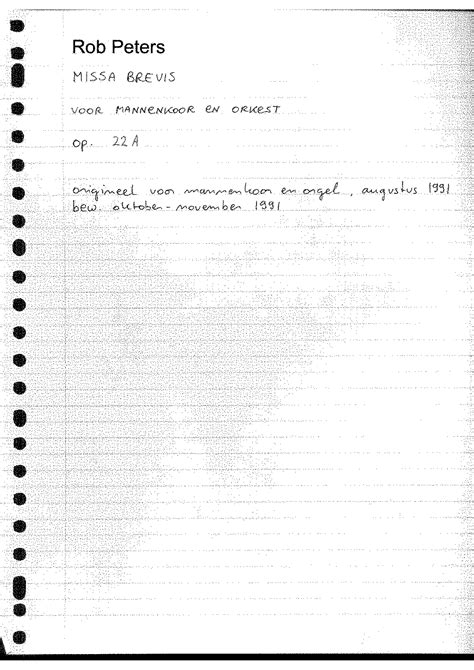 Rob Peters
MISSA BREVIS
VOOR MANNENKOOR EN ORKEST
op. 22A
origineel voor mannenkoor en orgel, augustus 1991
bew. oktober-november 1991